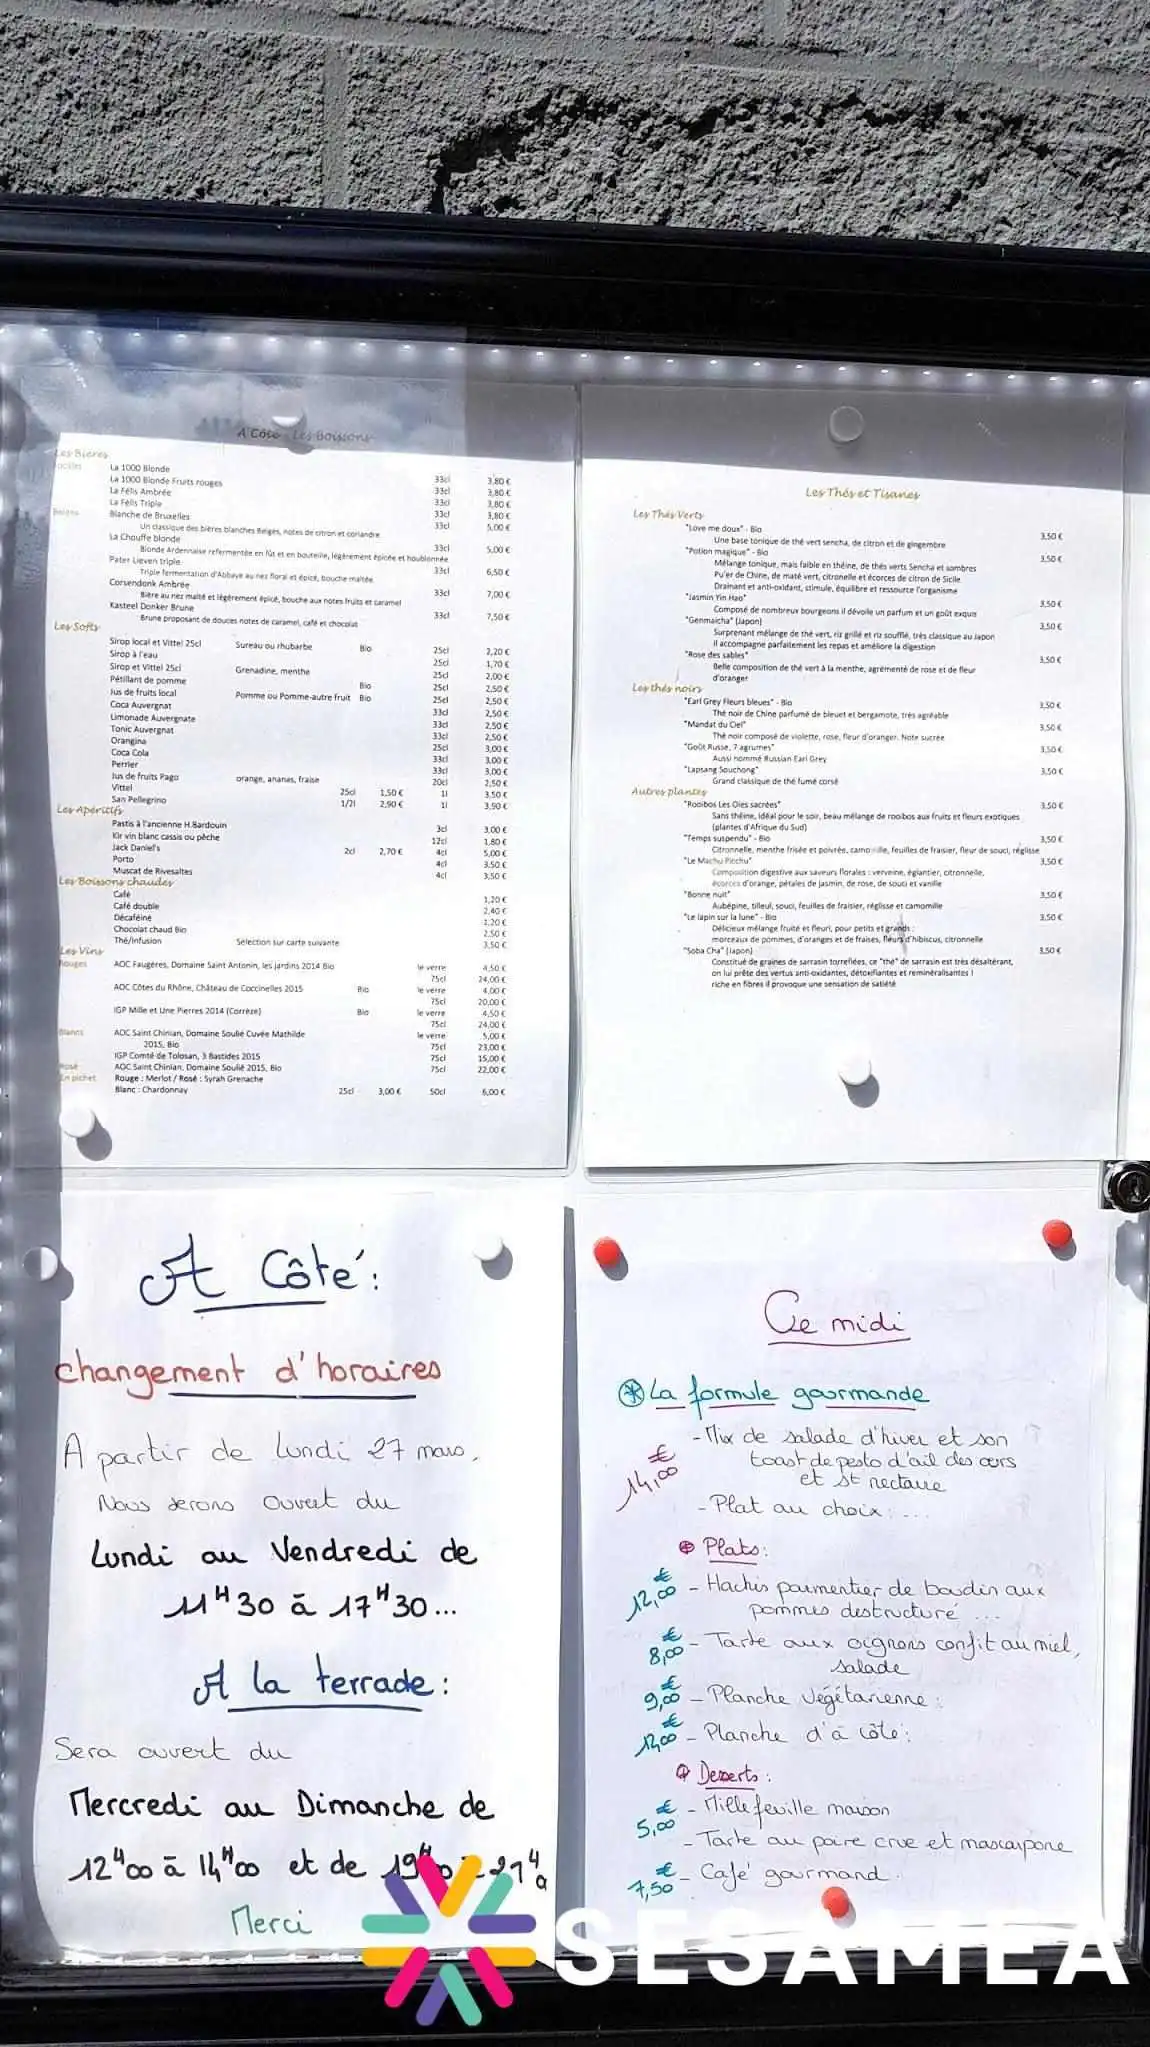 A Côté - Les Boissons
Les Bières
La 1000 Blonde 33cl 3,80 €
La 1000 Blonde Fruits rouges 33cl 3,80 €
La Félis Ambrée 33cl 3,80 €
La Félis Triple 33cl 3,80 €
Blanche de Bruxelles 33cl 5,00 €
Un classique des bières blanches Belges, notes de citron et coriandre
La Chouffe blonde 33cl 5,00 €
Blonde Ardennaise refermentée en fût et en bouteille, légèrement épicée et houblonnée
Pater Lieven triple 33cl 6,50 €
Triple fermentation d'Abbaye au nez floral et épicé, bouche maltée
Corsendonk Ambrée 33cl 7,00 €
Bière au nez malté et légèrement épicé, bouche aux notes fruits et caramel
Kasteel Donker Brune 33cl 7,50 €
Brune proposant de douces notes de caramel, café et chocolat
Les Softs
Sirop local et Vittel 25cl Sureau ou rhubarbe Bio 25cl 2,20 €
Sirop à l'eau 25cl 1,70 €
Sirop et Vittel 25cl Grenadine, menthe 25cl 2,00 €
Pétillant de pomme Bio 25cl 2,50 €
Jus de fruits local Pomme ou Pomme-autre fruit Bio 25cl 2,50 €
Coca Auvergnat 33cl 2,50 €
Limonade Auvergnate 33cl 2,50 €
Tonic Auvergnat 33cl 2,50 €
Orangina 25cl 3,00 €
Coca Cola 33cl 3,00 €
Perrier 33cl 3,00 €
Jus de fruits Pago orange, ananas, fraise 20cl 2,50 €
Vittel 25cl 1,50 € 1l 3,50 €
San Pellegrino 1/2l 2,90 € 1l 3,90 €
Les Apéritifs
Pastis à l'ancienne H.Bardouin 3cl 3,00 €
Kir vin blanc cassis ou pêche 12cl 1,80 €
Jack Daniel's 2cl 2,70 € 4cl 5,00 €
Porto 4cl 3,50 €
Muscat de Rivesaltes 4cl 3,50 €
Les Boissons chaudes
Café 1,20 €
Café double 2,40 €
Décaféiné 1,20 €
Chocolat chaud Bio 2,50 €
Thé/Infusion Sélection sur carte suivante 3,50 €
Les Vins
Rouges AOC Faugères, Domaine Saint Antonin, les jardins 2014 Bio le verre 4,50 €
75cl 24,00 €
AOC Côtes du Rhône, Château de Coccinelles 2015 Bio le verre 4,00 €
75cl 20,00 €
IGP Mille et Une Pierres 2014 (Corrèze) Bio le verre 4,50 €
75cl 24,00 €
Blancs AOC Saint Chinian, Domaine Soulié Cuvée Mathilde le verre 5,00 €
2015, Bio 75cl 23,00 €
IGP Comté de Tolosan, 3 Bastides 2015 75cl 15,00 €
Rosé AOC Saint Chinian, Domaine Soulié 2015, Bio 75cl 22,00 €
En pichet Rouge : Merlot / Rosé : Syrah Grenache
Blanc : Chardonnay 25cl 3,00 € 50cl 6,00 €
Les Thés et Tisanes
Les Thés Verts
"Love me doux" - Bio 3,50 €
Une base tonique de thé vert sencha, de citron et de gingembre
"Potion magique" - Bio 3,50 €
Mélange tonique, mais faible en théine, de thés verts Sencha et sombres
Pu'er de Chine, de maté vert, citronelle et écorces de citron de Sicile
Drainant et anti-oxidant, stimule, équilibre et ressource l'organisme
"Jasmin Yin Hao" 3,50 €
Composé de nombreux bourgeons il dévoile un parfum et un goût exquis
"Genmaicha" (Japon) 3,50 €
Surprenant mélange de thé vert, riz grillé et riz soufflé, très classique au Japon
Il accompagne parfaitement les repas et améliore la digestion
"Rose des sables" 3,50 €
Belle composition de thé vert à la menthe, agrémenté de rose et de fleur
d'oranger
Les thés noirs
"Earl Grey Fleurs bleues" - Bio 3,50 €
Thé noir de Chine parfumé de bleuet et bergamote, très agréable
"Mandat du Ciel" 3,50 €
Thé noir composé de violette, rose, fleur d'oranger. Note sucrée
"Goût Russe, 7 agrumes" 3,50 €
Aussi nommé Russian Earl Grey
"Lapsang Souchong" 3,50 €
Grand classique de thé fumé corsé
Autres plantes
"Rooibos Les Oies sacrées" 3,50 €
Sans théine, idéal pour le soir, beau mélange de rooibos aux fruits et fleurs exotiques
(plantes d'Afrique du Sud)
"Temps suspendu" - Bio 3,50 €
Citronnelle, menthe frisée et poivrée, camomille, feuilles de fraisier, fleur de souci, réglisse
"Le Machu Picchu" 3,50 €
Composition digestive aux saveurs florales : verveine, églantier, citronnelle,
écorces d'orange, pétales de jasmin, de rose, de souci et vanille
"Bonne nuit" 3,50 €
Aubépine, tilleul, souci, feuilles de fraisier, réglisse et camomille
"Le lapin sur la lune" - Bio 3,50 €
Délicieux mélange fruité et fleuri, pour petits et grands :
morceaux de pommes, d'oranges et de fraises, fleurs d'hibiscus, citronnelle
"Soba Cha" (Japon) 3,50 €
Constitué de graines de sarrasin torréfiées, ce "thé" de sarrasin est très désaltérant,
on lui prête des vertus anti-oxidantes, détoxifiantes et reminéralisantes !
riche en fibres il provoque une sensation de satiété
A Côté :
changement d'horaires
A partir de lundi 27 mars,
Nous serons ouvert du
Lundi au Vendredi de
11H30 à 17H30...
A la terrade :
Sera ouvert du
Mercredi au Dimanche de
12H00 à 14H00 et de
Merci
Ce midi
La formule gourmande
- Mix de salade d'hiver et son
toast de pesto d'ail des ours
et st nectaire
14,00 €
- Plat au choix : ...
Plats :
12,00 € - Hachis parmentier de boudin aux
pommes destructuré ...
8,00 € - Tarte aux oignons confit au miel,
salade
9,00 € - Planche végétarienne :
12,00 € - Planche d'à côté :
Desserts :
5,00 € - Millefeuille maison
- Tarte au poire crue et mascarpone
7,50 € - Café gourmand.
SESAMEA